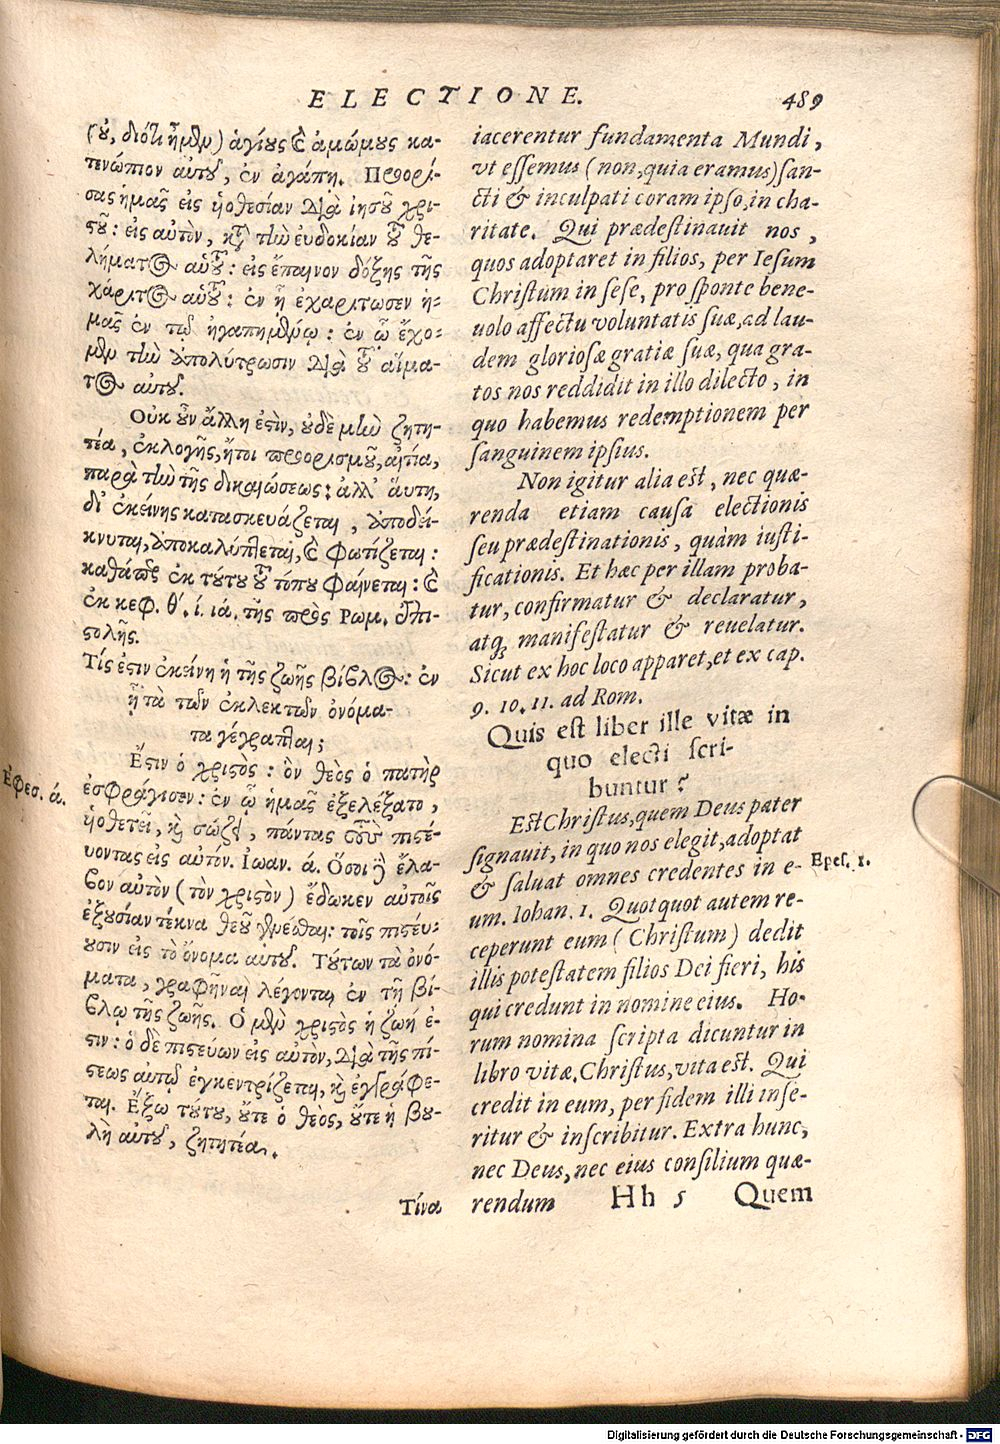 ELECTIONE. 489
(οὐ, διότι ἦμεν) ἁγίους καὶ ἀμώμους κα-
τενώπιον αὐτοῦ, ἐν ἀγάπῃ. Προορί-
σας ἡμᾶς εἰς υἱοθεσίαν διὰ ἰησοῦ χρι-
στοῦ: εἰς αὐτὸν, κατὰ τὴν εὐδοκίαν τοῦ θε-
λήματος αὑτοῦ: εἰς ἔπαινον δόξης τῆς
χάριτος αὑτοῦ: ἐν ᾗ ἐχαρίτωσεν ἡ-
μᾶς ἐν τῷ ἠγαπημένῳ: ἐν ᾧ ἔχο-
μεν τὴν ἀπολύτρωσιν διὰ τοῦ αἵμα-
τος αὐτοῦ.
Οὐκ οὖν ἄλλη ἐστὶν, οὐδὲ μὴν ζητη-
τέα, ἐκλογῆς, ἤτοι προορισμοῦ, αἰτία,
παρὰ τὴν τῆς δικαιώσεως: ἀλλ' αὕτη,
δι' ἐκείνης κατασκευάζεται, ἀποδεί-
κνυται, ἀποκαλύπτεται, καὶ φωτίζεται:
καθάπερ ἐκ τούτου τοῦ τόπου φαίνεται: καὶ
ἐκ κεφ. θ'. ί. ιά. τῆς πρὸς Ρωμ. ἐπι-
στολῆς.
Τίς ἐστιν ἐκείνη ἡ τῆς ζωῆς βίβλος: ἐν
ᾗ τὰ τῶν ἐκλεκτῶν ὀνόμα-
τα γέγραπται;
Ἔστιν ὁ χριστὸς: ὃν θεὸς ὁ πατὴρ
Ἐφεσ. ά.
ἐσφράγισεν: ἐν ᾧ ἡμᾶς ἐξελέξατο,
υἱοθετεῖ, καὶ σώζει, πάντας τοὺς πιστέ-
υοντας εἰς αὐτόν. Ιωαν. ά. Ὅσοι δὲ ἔλα-
βον αὐτὸν (τὸν χριστὸν) ἔδωκεν αὐτοῖς
ἐξουσίαν τέκνα θεοῦ γενέσθαι: τοῖς πιστεύ-
ουσιν εἰς τὸ ὄνομα αὐτοῦ. Τούτων τὰ ὀνό-
ματα, γραφῆναι λέγονται ἐν τῇ βί-
βλῳ τῆς ζωῆς. Ὁ μὲν χριστὸς ἡ ζωή ἐ-
στιν: ὁ δὲ πιστεύων εἰς αὐτὸν, διὰ τῆς πί-
στεως αὐτῷ ἐγκεντρίζεται, καὶ ἐγγράφε-
ται. Ἔξω τούτου, οὔτε ὁ θεὸς, οὔτε ἡ βου-
λὴ αὐτοῦ, ζητητέα.
Τίνα
iacerentur fundamenta Mundi,
vt essemus (non, quia eramus) san-
cti & inculpati coram ipso, in cha-
ritate. Qui prædestinauit nos,
quos adoptaret in filios, per Iesum
Christum in sese, pro sponte bene-
uolo affectu voluntatis suæ, ad lau-
dem gloriosæ gratiæ suæ, qua gra-
tos nos reddidit in illo dilecto, in
quo habemus redemptionem per
sanguinem ipsius.
Non igitur alia est, nec quæ-
renda etiam causa electionis
seu prædestinationis, quàm iusti-
ficationis. Et hæc per illam proba-
tur, confirmatur & declaratur,
atq; manifestatur & reuelatur.
Sicut ex hoc loco apparet, et ex cap.
9. 10. 11. ad Rom.
Quis est liber ille vitæ in
quo electi scri-
buntur?
Est Christus, quem Deus pater
signauit, in quo nos elegit, adoptat
Epes. 1.
& saluat omnes credentes in e-
um. Iohan. 1. Quotquot autem re-
ceperunt eum (Christum) dedit
illis potestatem filios Dei fieri, his
qui credunt in nomine eius. Ho-
rum nomina scripta dicuntur in
libro vitæ. Christus, vita est. Qui
credit in eum, per fidem illi inse-
ritur & inscribitur. Extra hunc,
nec Deus, nec eius consilium quæ-
rendum Hh 5 Quem
Digitalisierung gefördert durch die Deutsche Forschungsgemeinschaft - DFG